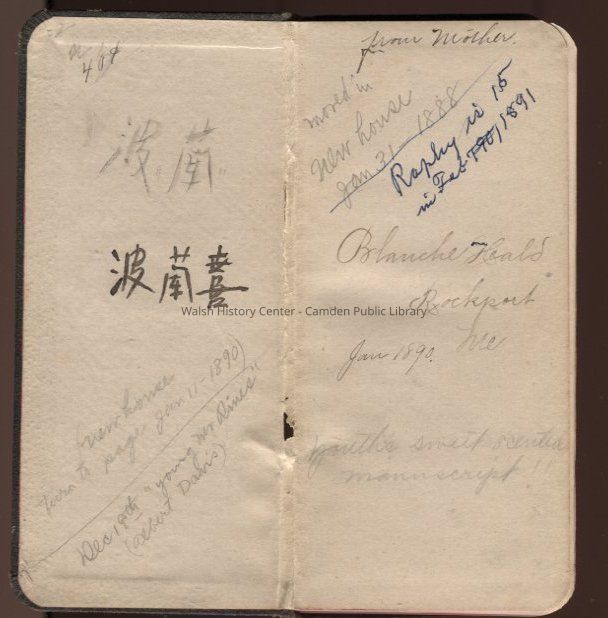 464
波蘭
波蘭喜
New house
Turn to page Jan 11-1890)
Dec 19th "young Mr Rines"
(Albert Davis)
from Mother.
moved in
New house
Jan 31 1888
Raphy is 15
in Feb 1891
Blanche Heald
Rockport
Me
Jan 1890.
Youth's sweet scented
manuscript!!
Walsh History Center - Camden Public Library